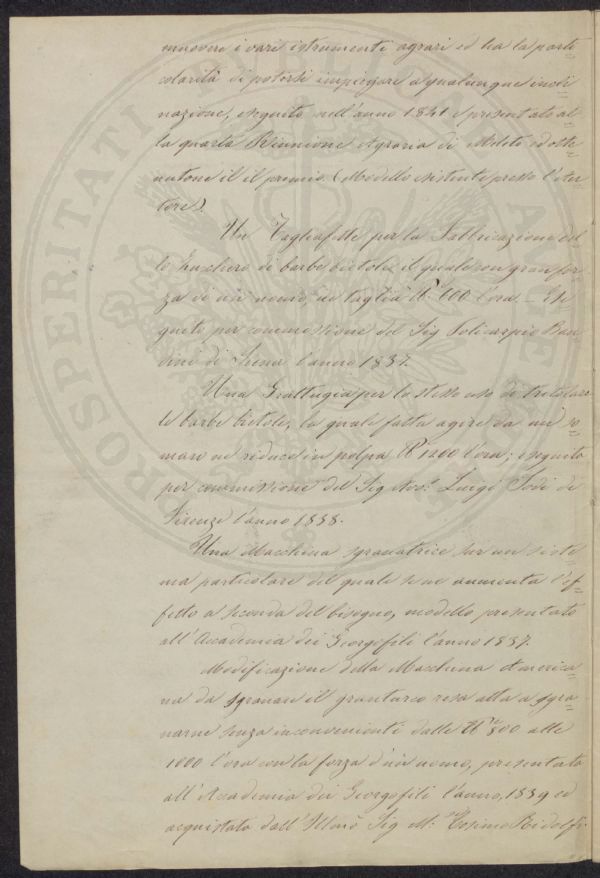 muovere i vari istrumenti agrari ed ha la parti=
colarità di potersi impiegare a qualunque incli=
nazione, eseguito nell'anno 1841 e presentato al=
la quarta Riunione Agraria di Meleto ed otte=
nutone il il premio. (Modello esistente presso l'Au=
tore).
Un Tagliafette per la Fabbricazione del=
lo Zucchero di barbe bietole il quale con gran for=
za di un uomo, ne taglia ℔ 600 l'ora._ Ese=
guito per commissione del Sig Policarpio Ban=
dini di Siena l'anno 1837.
Una Grattugia per lo stesso uso di tritolare
le barbe bietole, la quale fatta agire da un so=
maro ne riduce in polpa ℔ 1200 l'ora; eseguito
per commissione del Sig Avv.º Luigi di
Firenze l'anno 1838.
Una Macchina sgranatrice su un siste=
ma particolare del quale se ne aumenta l'ef=
fetto a seconda del bisogno, modello presentato
all'Accademia dei Georgofili l'anno 1837.
Modificazione della Macchina America=
na da sgranare il granturco resa atta a sgra=
narne senza inconvenienti dalle ℔ 800 alle
1000 l'ora con la forza d'un uomo, presentata
all'Accademia dei Georgofili l'anno, 1839 ed
acquistata dall'Illmo Sig M: Cosimo Ridolfi.
PROSPERITATI PUBLICAE AUGENDAE